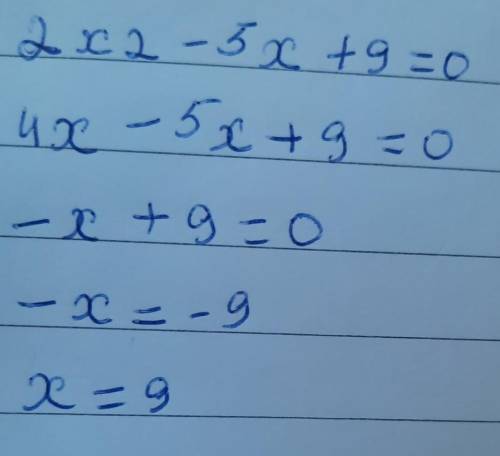 2x2 - 5x + 9 = 0
4x - 5x + 9 = 0
-x + 9 = 0
-x = -9
x = 9